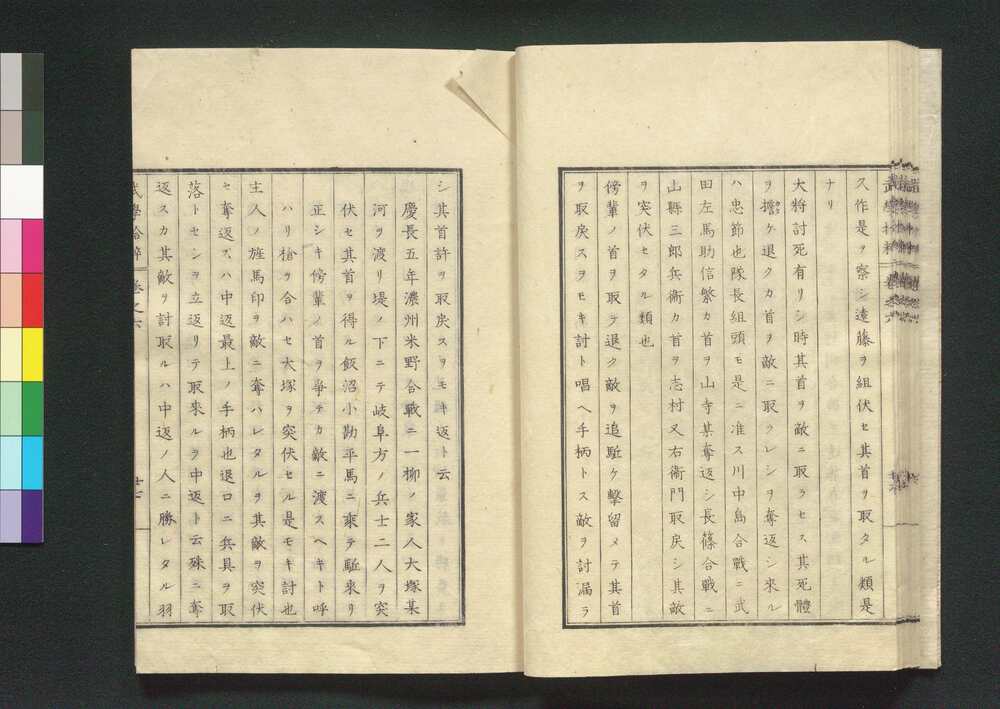 久作是ヲ察シ遠藤ヲ組伏セ其首ヲ取タル類是
ナリ
大将討死有リシ時其首ヲ敵ニ取ラセス其死體
ヲ擔ケ退クカ首ヲ敵ニ取ラレシヲ奪返シ来ル
ハ忠節也隊長組頭モ是ニ准ス川中島合戰ニ武
田左馬助信繁カ首ヲ山寺某奪返シ長篠合戰ニ
山縣三郎兵衞カ首ヲ志村又右衞門取戻シ其敵
ヲ突伏セタル類也
傍輩ノ首ヲ取テ退ク敵ヲ追駈ケ撃留メテ其首
ヲ取戻スヲモキ討ト唱ヘ手柄トス敵ヲ討漏ラ
シ其首許ヲ取戻スヲモキ返ト云
慶長五年濃州米野合戰ニ一柳ノ家人大塚某
河ヲ渡リ堤ノ下ニテ岐阜方ノ兵士二人ヲ突
伏セ其首ヲ得ル飯沼小勘平馬ニ乘テ駈来リ
正シキ傍輩ノ首ヲ爭テカ敵ニ渡スヘキト呼
ハリ槍ヲ合ハセ大塚ヲ突伏セル是モキ討也
主人ノ旌馬印ヲ敵ニ奪ハレタルヲ其敵ヲ突伏
セ奪返スハ中返最上ノ手柄也退口ニ兵具ヲ取
落トセシヲ立返リテ取來ルヲ中返ト云殊ニ奪
返スカ其敵ヲ討取ルハ中返ノ人ニ勝レタル羽
武學拾粹 卷之六